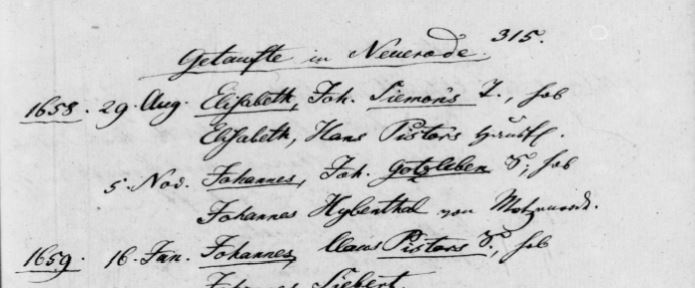 Getaufte in Neuerode. 315.
1658. 29. Aug. Elisabeth, Joh. Siemons T., hob
Elisabeth, Hans Pistors Hausfr.
5. Nov. Johannes, Joh. Gotzleben S., hob
Johannes Hybenthal von Motzenrode.
1659. 16. Jan. Johannes, Claus Pistors S., hob
Johannes Siebert.